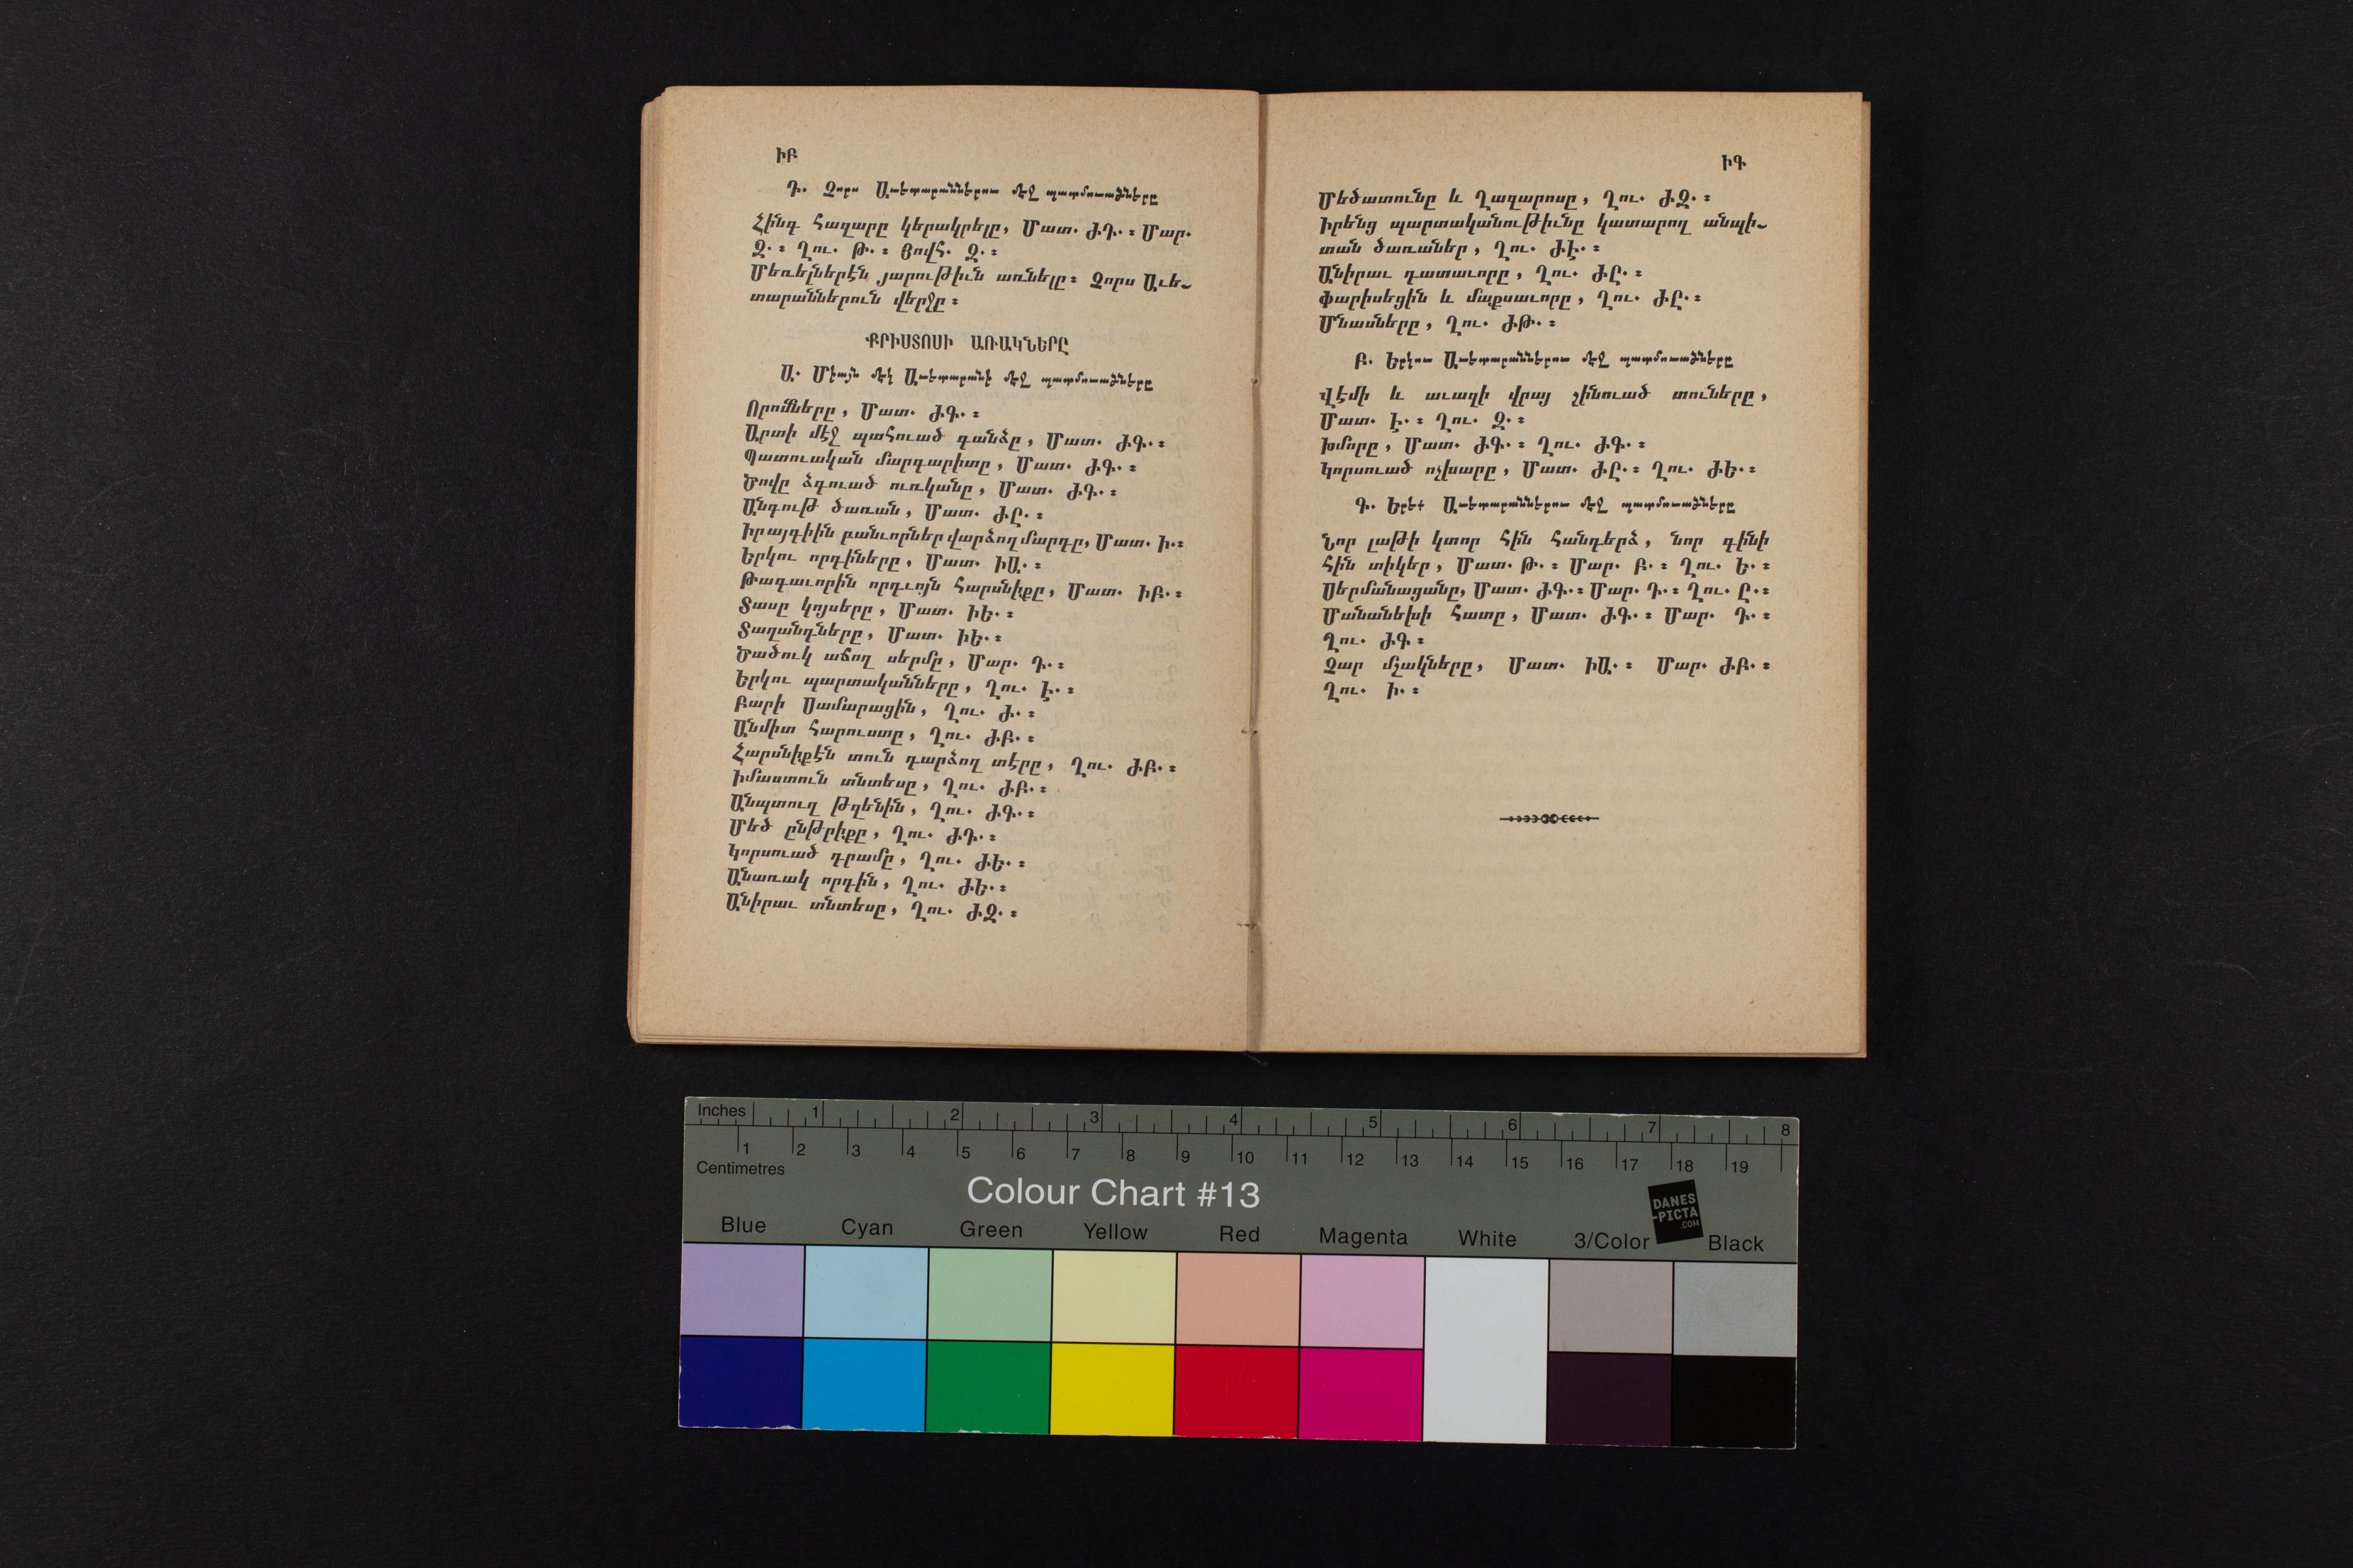 ԻԲ
Դ. Չորս Աւետարաններու մէջ պատմուածները
Հինգ հազարը կերակրելը, Մատ. ԺԴ.։ Մար.
Զ.։ Ղու. Թ.։ Յովհ. Զ.։
Մեռելներէն յարութիւն առնելը։ Չորս Աւե-
տարաններուն վերջը։
ՔՐԻՍՏՈՍԻ ԱՌԱԿՆԵՐԸ
Ա. Միայն մէկ Աւետարանի մէջ պատմուածները
Որոմները, Մատ. ԺԳ.։
Արտի մէջ պահուած գանձը, Մատ. ԺԳ.։
Պատուական մարգարիտը, Մատ. ԺԳ.։
Ծովը ձգուած ուռկանը, Մատ. ԺԳ.։
Անգութ ծառան, Մատ. ԺԸ.։
Իր այգիին բանւորներ վարձող մարդը, Մատ. Ի.։
Երկու որդիները, Մատ. ԻԱ.։
Թագաւորին որդւոյն հարսնիքը, Մատ. ԻԲ.։
Տասը կոյսերը, Մատ. ԻԵ.։
Տաղանդները, Մատ. ԻԵ.։
Ծածուկ աճող սերմը, Մար. Դ.։
Երկու պարտականները, Ղու. Է.։
Բարի Սամարացին, Ղու. Ժ.։
Անմիտ հարուստը, Ղու. ԺԲ.։
Հարսնիքէն տուն դարձող տէրը, Ղու. ԺԲ.։
Իմաստուն տնտեսը, Ղու. ԺԲ.։
Անպտուղ թզենին, Ղու. ԺԳ.։
Մեծ ընթրիքը, Ղու. ԺԴ.։
Կորսուած դրամը, Ղու. ԺԵ.։
Անառակ որդին, Ղու. ԺԵ.։
Անիրաւ տնտեսը, Ղու. ԺԶ.։
ԻԳ
Մեծատունը և Ղազարոսը, Ղու. ԺԶ.։
Իրենց պարտականութիւնը կատարող անպի-
տան ծառաներ, Ղու. ԺԷ.։
Անիրաւ դատաւորը, Ղու. ԺԸ.։
Փարիսեցին և մաքսաւորը, Ղու. ԺԸ.։
Մնասները, Ղու. ԺԹ.։
Բ. Երկու Աւետարաններու մէջ պատմուածները
Վէմի և աւազի վրայ շինուած տուները,
Մատ. Է.։ Ղու. Զ.։
Խմորը, Մատ. ԺԳ.։ Ղու. ԺԳ.։
Կորսուած ոչխարը, Մատ. ԺԸ.։ Ղու. ԺԵ.։
Գ. Երեք Աւետարաններու մէջ պատմուածները
Նոր լաթի կտոր հին հանդերձ, նոր գինի
հին տիկեր, Մատ. Թ.։ Մար. Բ.։ Ղու. Ե.։
Սերմանացանը, Մատ. ԺԳ.։ Մար. Դ.։ Ղու. Ը.։
Մանանեխի հատը, Մատ. ԺԳ.։ Մար. Դ.։
Ղու. ԺԳ։
Չար մշակները, Մատ. ԻԱ.։ Մար. ԺԲ.։
Ղու. Ի.։
Inches 1 2 3 4 5 6 7 8
1 2 3 4 5 6 7 8 9 10 11 12 13 14 15 16 17 18 19
Centimetres
Colour Chart #13
DANES
-PICTA
.COM
Blue Cyan Green Yellow Red Magenta White 3/Color Black